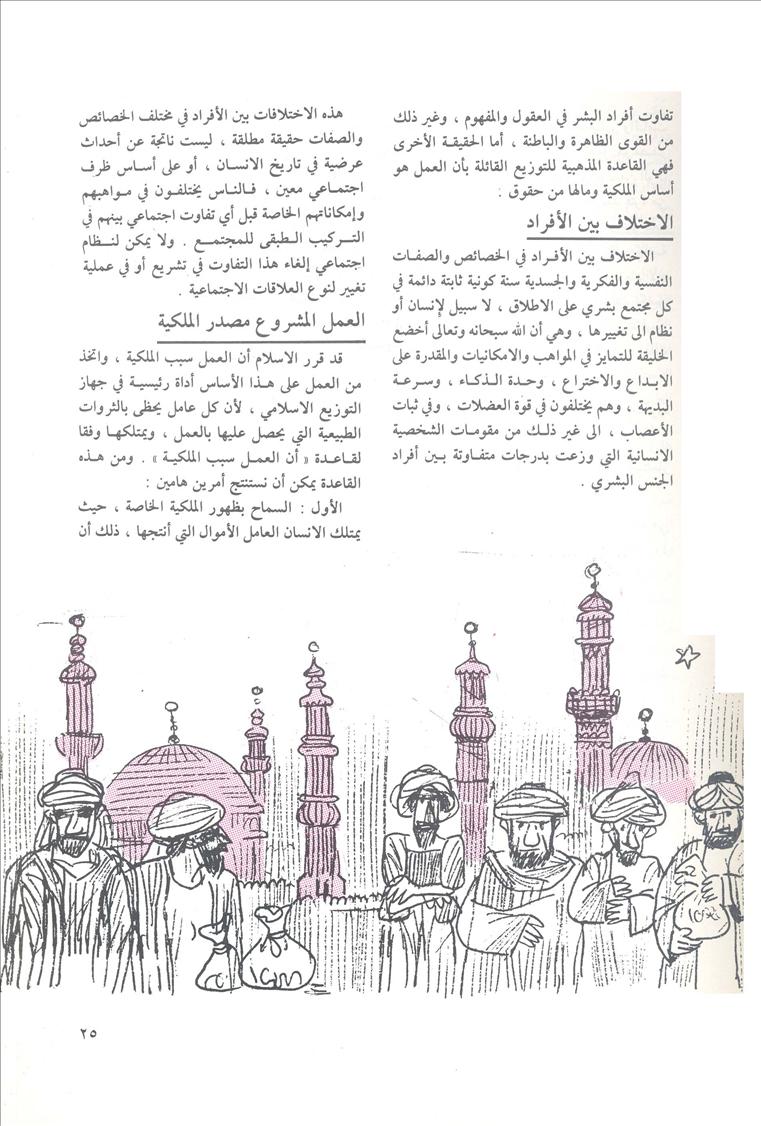 تفاوت أفراد البشر في العقول والمفهوم ، وغير ذلك
من القوى الظاهرة والباطنة ، أما الحقيقة الأخرى
فهي القاعدة المذهبية للتوزيع القائلة بأن العمل هو
أساس الملكية ومالها من حقوق .
الاختلاف بين الأفراد
الاختلاف بين الأفراد في الخصائص والصفات
النفسية والفكرية والجسدية سنة كونية ثابتة دائمة في
كل مجتمع بشري على الاطلاق ، لا سبيل لإنسان أو
نظام الى تغييرها ، وهي أن الله سبحانه وتعالى أخضع
الخليقة للتمايز في المواهب والامكانيات والمقدرة على
الابداع والاختراع ، وحدة الذكاء ، وسرعة
البديهة ، وهم يختلفون في قوة العضلات ، وفي ثبات
الأعصاب ، الى غير ذلك من مقومات الشخصية
الانسانية التي وزعت بدرجات متفاوتة بين أفراد
الجنس البشري .
هذه الاختلافات بين الأفراد في مختلف الخصائص
والصفات حقيقة مطلقة ، ليست ناتجة عن أحداث
عرضية في تاريخ الانسان ، أو على أساس ظرف
اجتماعي معين ، فالناس يختلفون في مواهبهم
وإمكاناتهم الخاصة قبل أي تفاوت اجتماعي بينهم في
التركيب الطبقى للمجتمع . ولا يمكن لنظام
اجتماعي إلغاء هذا التفاوت في تشريع أو في عملية
تغيير لنوع العلاقات الاجتماعية .
العمل المشروع مصدر الملكية
قد قرر الاسلام أن العمل سبب الملكية ، واتخذ
من العمل على هذا الأساس أداة رئيسية في جهاز
التوزيع الاسلامي ، لأن كل عامل يحظى بالثروات
الطبيعية التي يحصل عليها بالعمل ، ويمتلكها وفقا
لقاعدة « أن العمل سبب الملكية » . ومن هذه
القاعدة يمكن أن نستنتج أمرين هامين :
الأول : السماح بظهور الملكية الخاصة ، حيث
يمتلك الانسان العامل الأموال التي أنتجها ، ذلك أن
٢٥